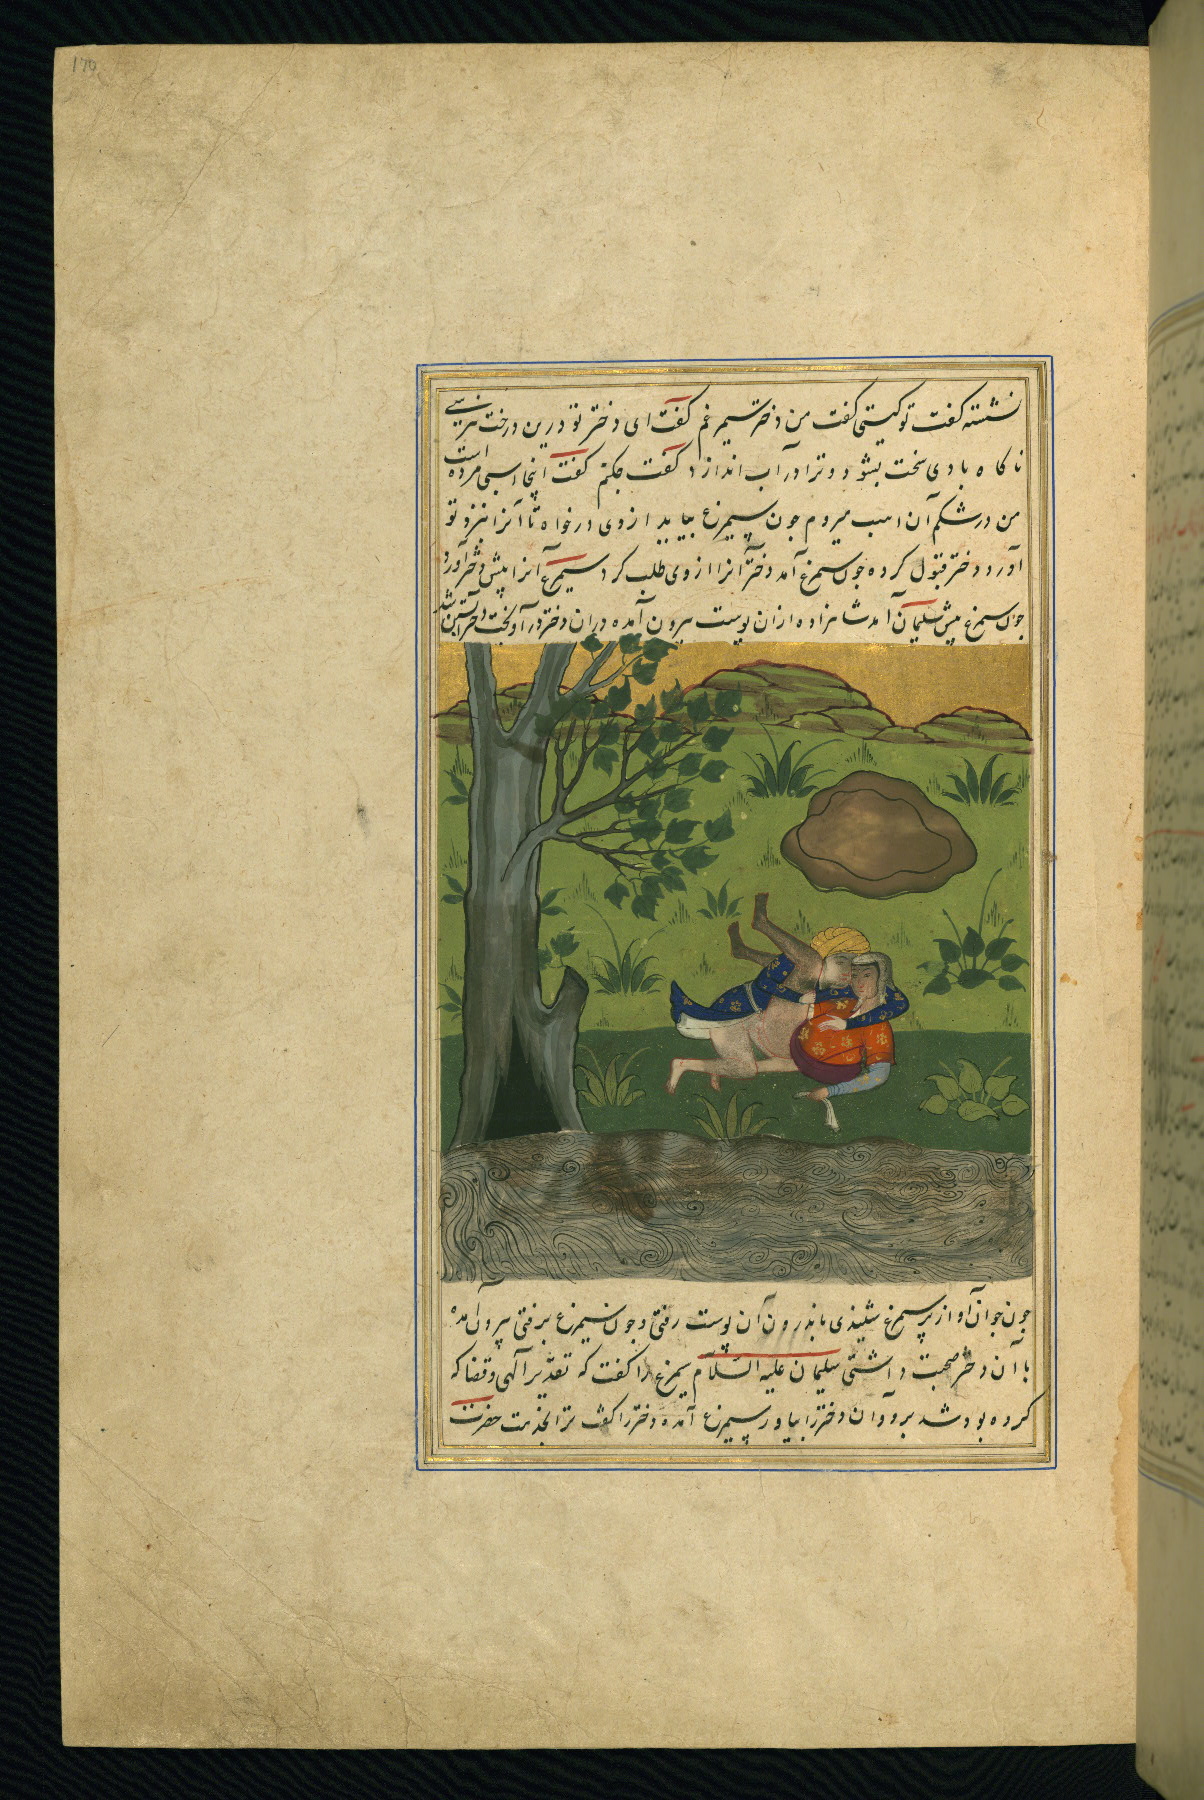 170
نشسته گفت تو کیستی گفت من دختر سیمرغم گفت ای دختر تو درین درخت می‌ترسی
ناکاه بادی سخت بشود و ترا در آب اندازد گفت چکنم گفت اینجا اسبی مرده است
من در شکم آن اسب میروم چون سیمرغ بیاید از وی درخواه تا آنرا نزد تو
آورد دختر قبول کرده چون سیمرغ آمد دختر آنرا از وی طلب کرد سیمرغ آنرا پیش دختر آورد
چون سیمرغ پیش سلیمان آمد شاهزاده از ان پوست بیرون آمده در ان دختر در آویخت دختر آبستن شد
چون جوان آواز پر سیمرغ شنیدی باندرون آن پوست رفتی و چون سیمرغ برفتی بیرون آمده
با آن دختر صحبت داشتی سلیمان علیه السلام سیمرغ را گفت که تقدیر الهی و قضا که
کرده بود شد برو آن دختر را بیاور سیمرغ آمده دختر را گفت ترا بخدمت حضرت